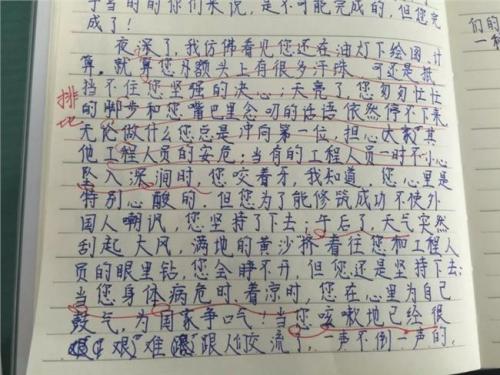 于当时的你们来说,是不可能完成的,但您完
成了!
夜深了,我仿佛看见您还在油灯下绘图、计
算。就算您的额头上有很多汗珠,可还是抵
挡不住您坚强的决心;天亮了,您匆匆忙忙
的脚步和您嘴巴里念叨的话语依然停不下来
无论做什么您总是冲向第一位,担心大家"其
他工程人员的安危;当有的工程人员一时不小心
坠入深涧时,您咬着牙,我知道,您心里是
特别心酸的,但您为了能修筑成功不使外
国人嘲讽,您坚持了下去;午后了,天气突然
刮起大风,满地的黄沙挤着往您和工程人
员的眼里钻,您会睁不开,但您还是坚持下去;
当您身体病危时、着凉时,您在心里为自己
鼓气,为国家争口气!当您咳嗽地已经很
艰难跟人们交流了,一声不倒一声的,
排比
们的
一